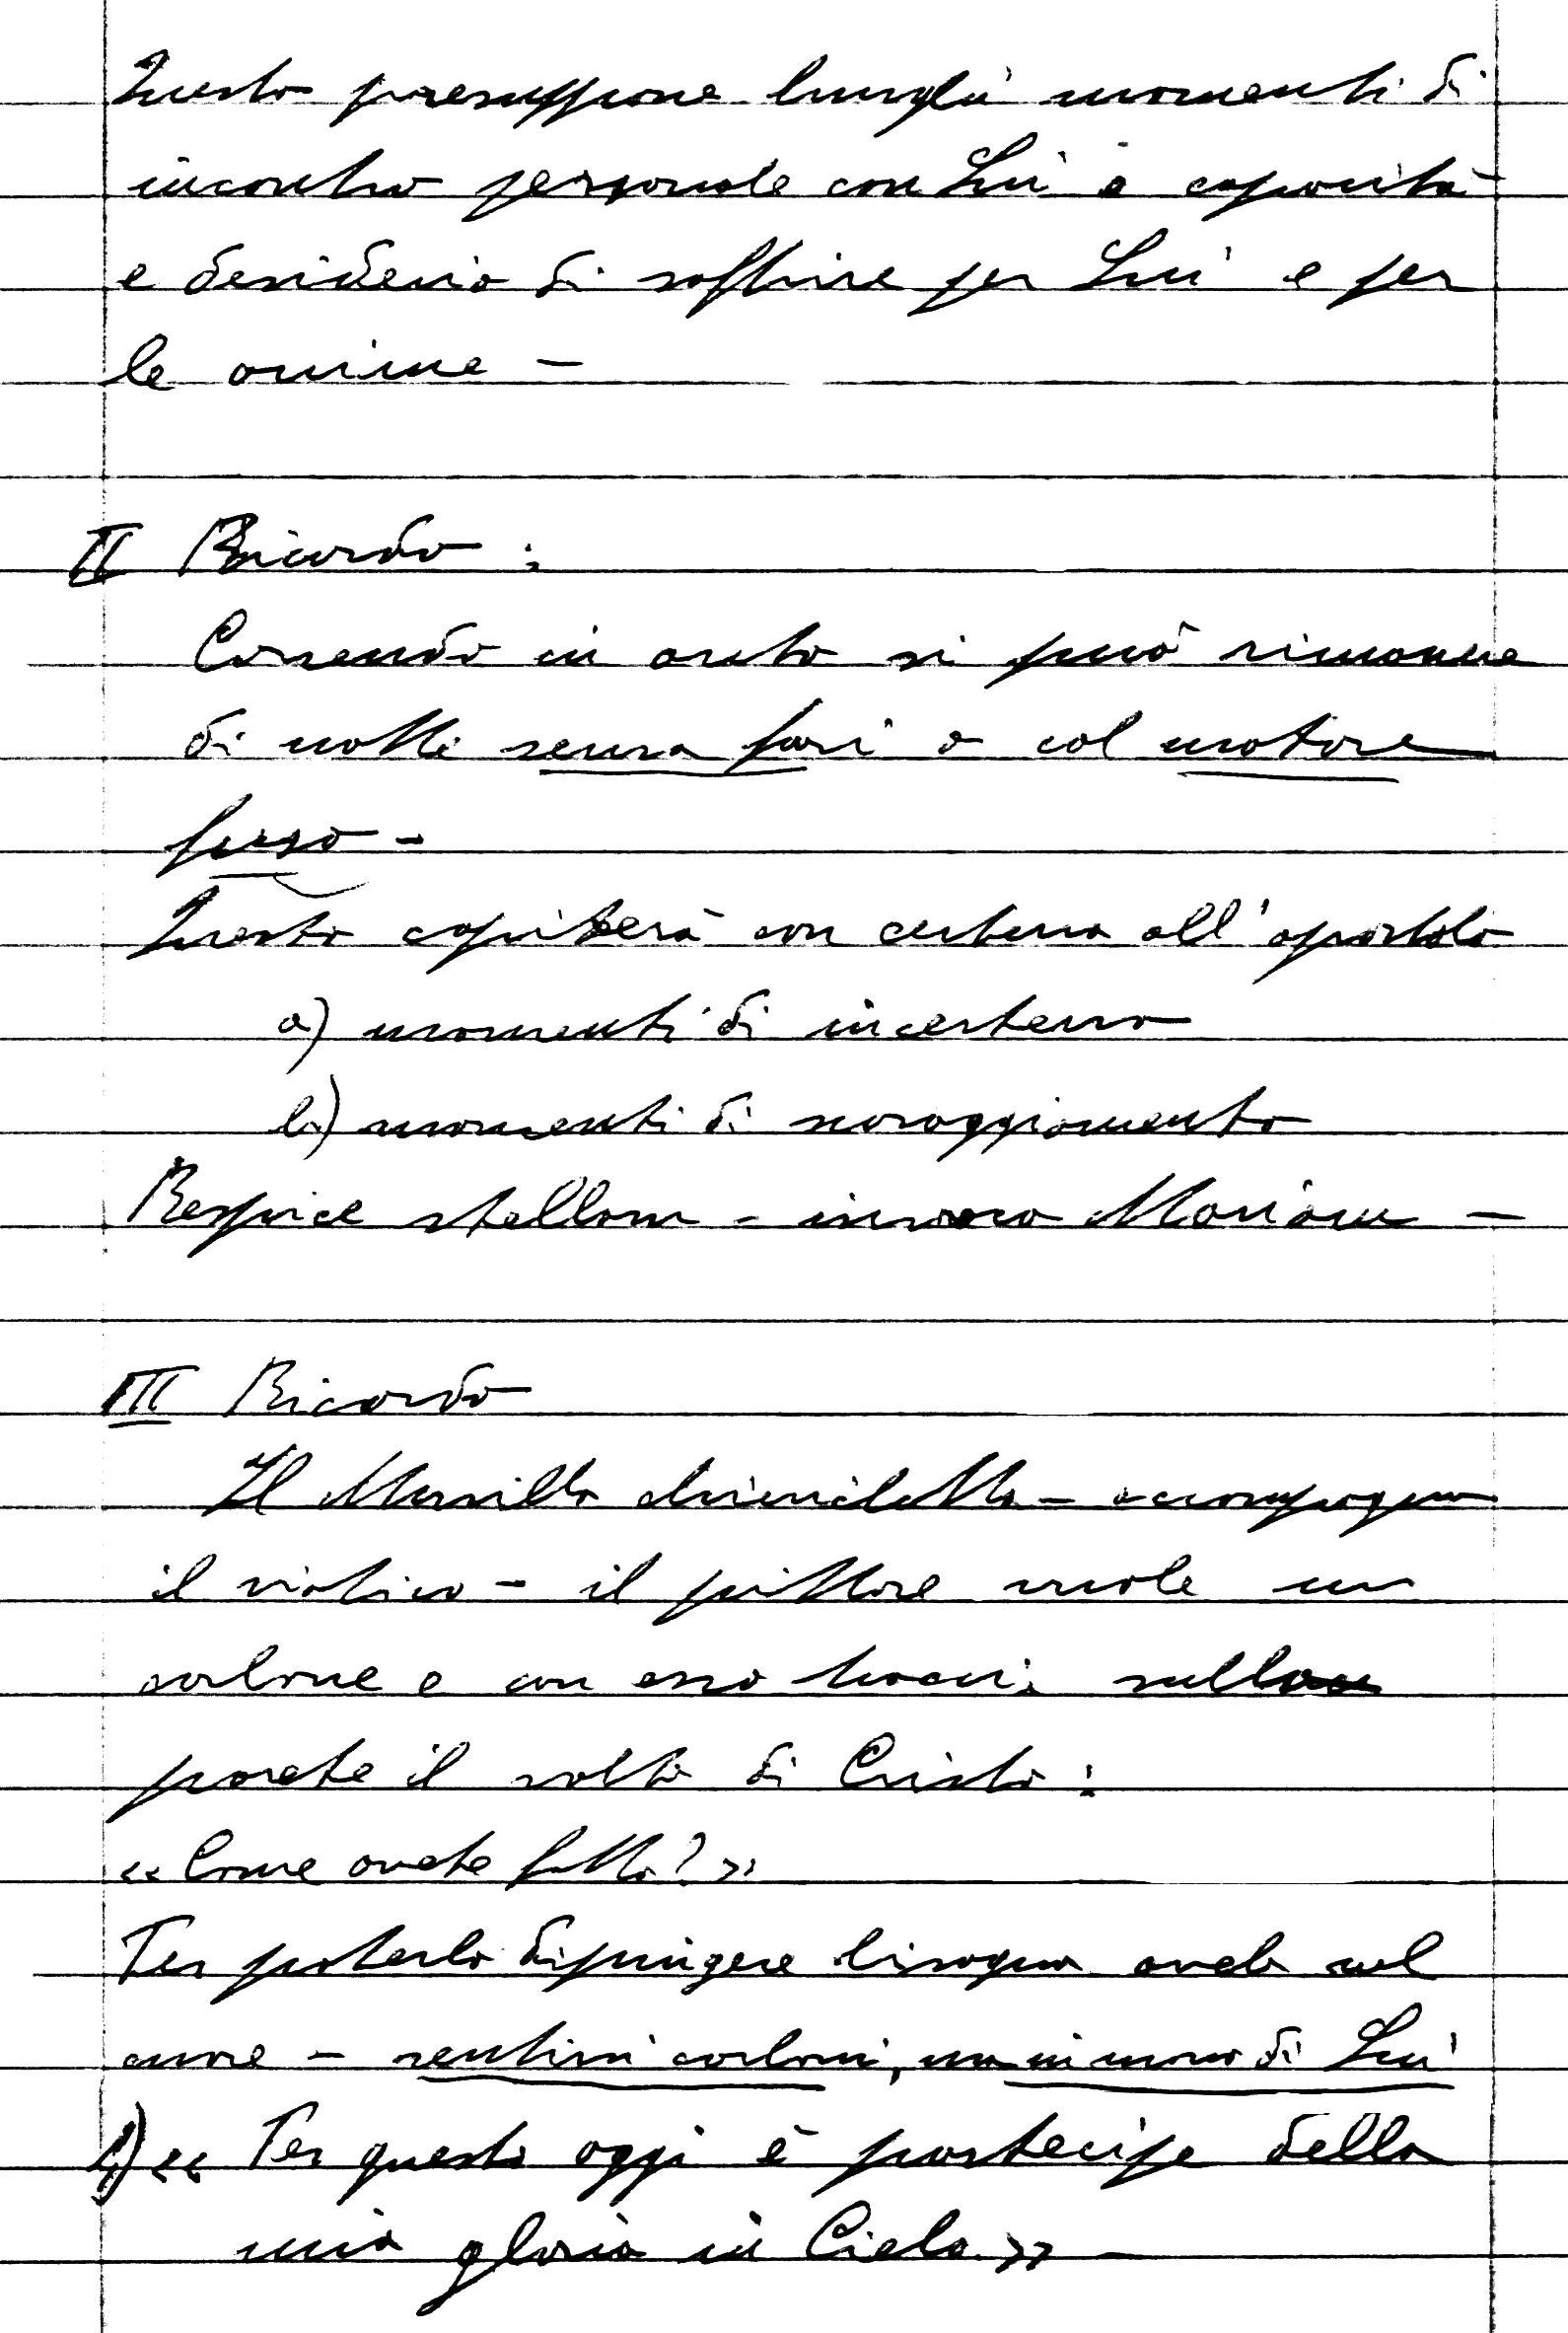 Questo presuppone lunghi momenti di
incontro personale con Lui e capacità
e desiderio di soffrire per Lui e per
le anime –
II Ricordo :
Correndo in auto si può rimanere
di notte senza fari o col motore
fuso –
Questo capiterà con certezza all'apostolo
a) momenti di incertezza
b) momenti di scoraggiamento
Respice stellam – invoca Mariam –
III Ricordo
Il Murillo chierichetto – accompagna
il viatico – il pittore vuole un
carbone e con esso traccia sulla
parete il volto di Cristo :
«Come avete fatto?»
Per poterlo dipingere bisogna averlo nel
cuore – sentirsi carboni, ma in mano di Lui
4) « Per questo oggi è partecipe della
mia gloria in Cielo.» –